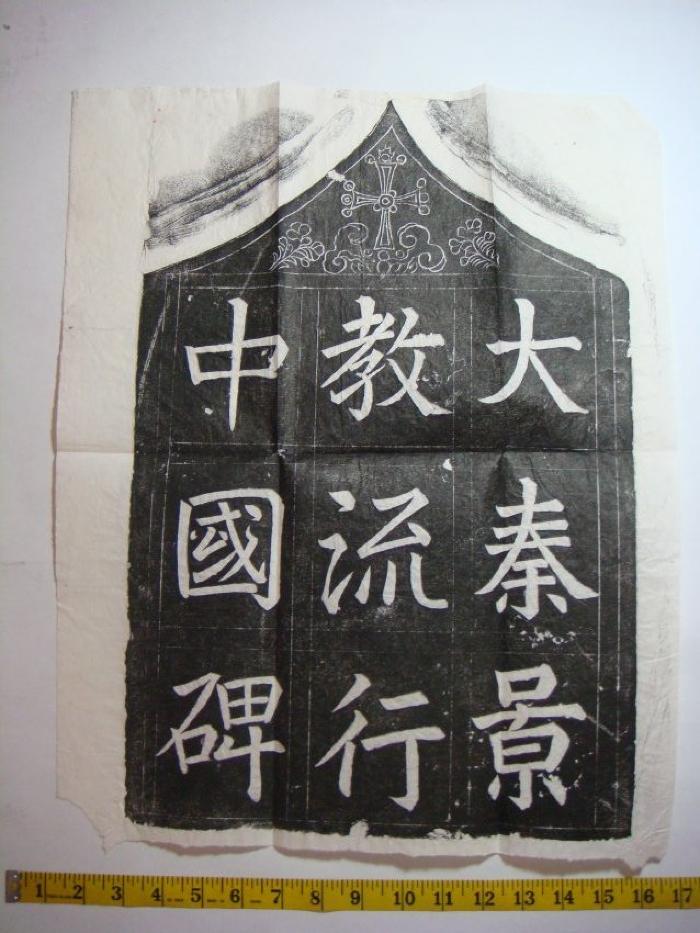 大秦景
教流行
中國碑
1 2 3 4 5 6 7 8 9 10 11 12 13 14 15 16 17